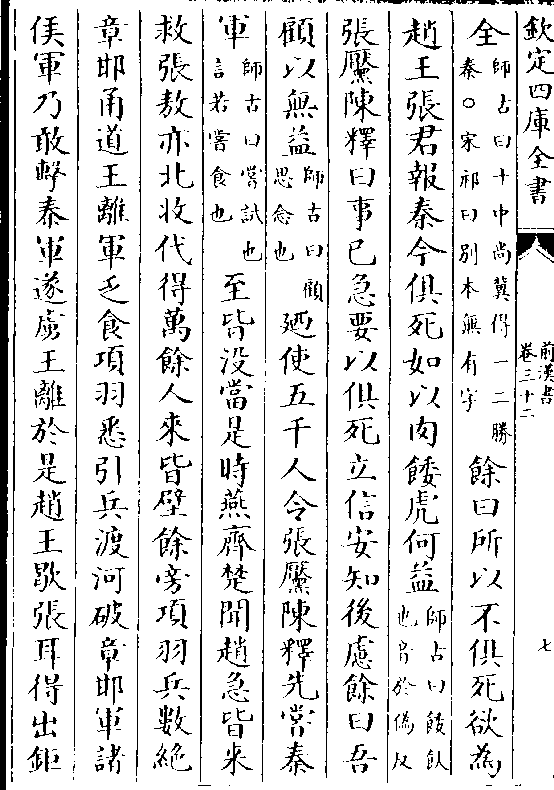 欽定四庫全書
前漢書
卷三十二
七
全師古曰十中尚冀得一二勝秦○宋祁曰別本無有字餘曰所以不俱死欲為
趙王張君報秦今俱死如以肉餧虎何益師古曰餧飤也音於偽反
張黶陳釋曰事已急要以俱死立信安知後慮餘曰吾
顧以無益師古曰顧思念也廼使五千人令張黶陳釋先嘗秦
軍師古曰嘗試也言若嘗食也至皆没當是時燕齊楚聞趙急皆來
救張敖亦北收代得萬餘人來皆壁餘旁項羽兵數絶
章邯甬道王離軍乏食項羽悉引兵渡河破章邯軍諸
侯軍乃敢擊秦軍遂虜王離於是趙王歇張耳得出鉅